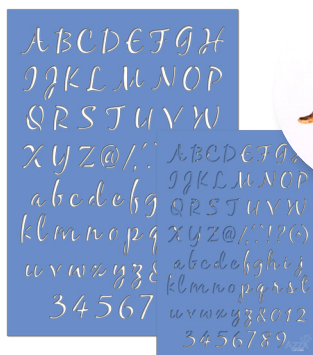 A B C D E F G H
I J K L M N O P
Q R S T U V W
X Y Z @ / , : '
a b c d e f g
k l m n o p q
u v w x y z &
3 4 5 6 7
A B C D E F G H
I J K L M N O P
Q R S T U V W
X Y Z @ / , : ' ! ? ( )
a b c d e f g h i j
k l m n o p q r s t
u v w x y z & 0 1 2
3 4 5 6 7 8 9